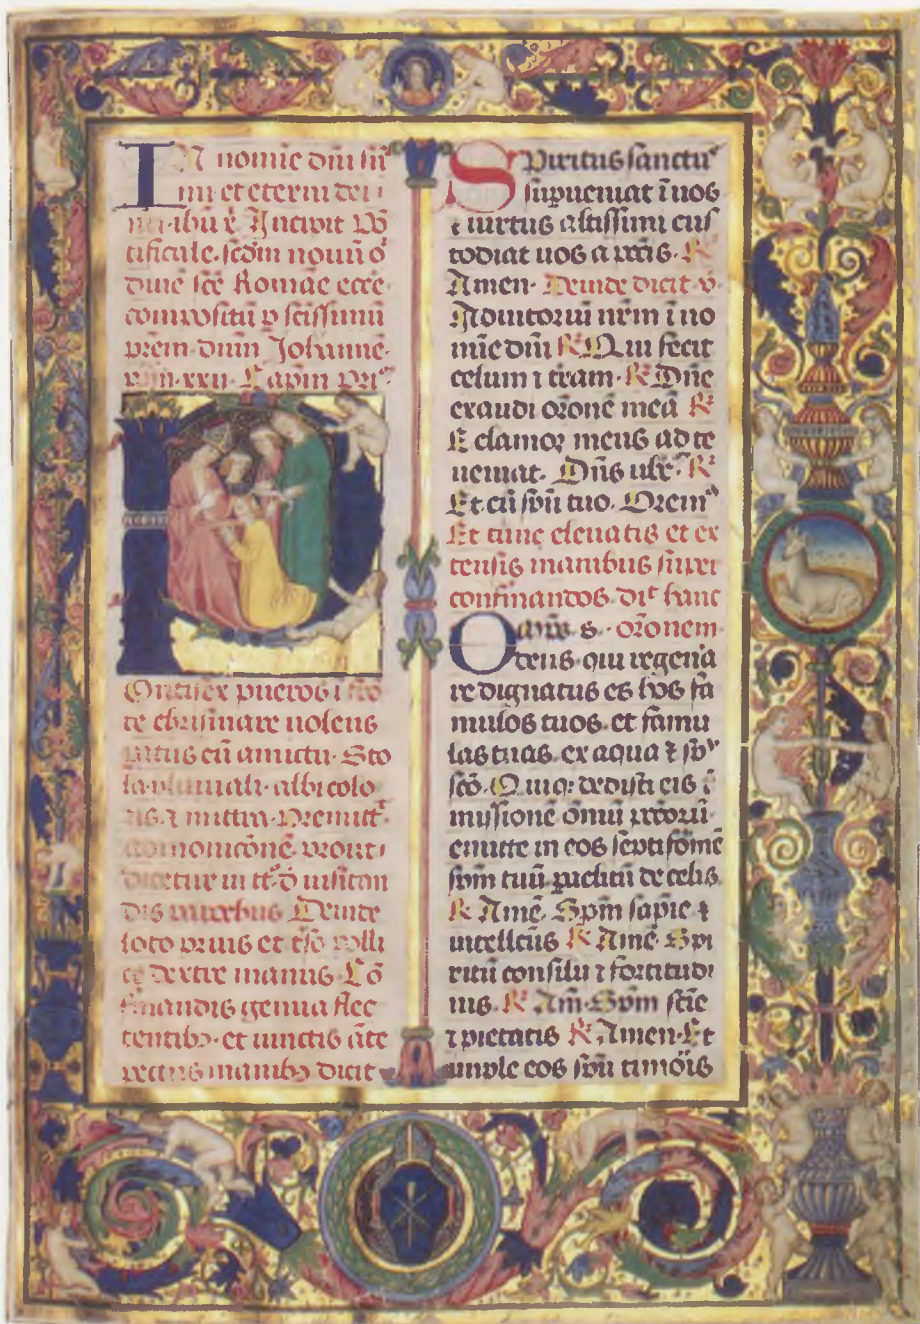 IN nomīe dn̄i n̄r̄i
ihū x̄. Incipit Pō
tificale. scd̄m novū o
dine scē Romāe eccē
compositū p scīssimū
prēm dnm Johanne
xxii. Capm pri
Pontifex pueros ī
te chrismare uolens
paratus cū amictu. Sto
la pluuiali albi colo
ris. ⁊ mittra. Premitt
amonicōnē prout
dicetur in tt̄o d uisitan
dis Deinde
loto prius et
ce dextre manus Cō
firmandis genua flec
tentibꝫ. et iunctis āte
pectus manibꝫ dicit
Spiritus sanctu
supueniat ī uos
⁊ uirtus altissimi cus
todiat uos a pctīs. ℟
Amen. Deinde dicit v.
Adiutoriū nrm ī no
mīe dn̄i ℟ Qui fecit
celum ⁊ tram. ℟ Dn̄e
exaudi orōnē meā ℟
Et clamor meus ad te
ueniat. Dn̄s ubr. ℟
Et cū spū tuo. Orem
Et tunc eleuatis et ex
tensis manibus super
confirmandos. dīt hanc
orōnem.
Deus qui regena
re dignatus es hos fa
mulos tuos. et famu
las tuas. ex aqua ⁊ sp
scō. Quiq; dedisti eis ī
missionē ōmiū pctōrū
emitte in eos septifōmē
spm tuū paclitū de celis.
℟ Amē. Spm sapīe ⁊
intellcūs ℟ Amē. Spi
ritū consilii ⁊ fortitudi
nis. ℟ Am̄. Spm sciē
⁊ pietatis ℟ Amen. Et
imple eos spū timoris